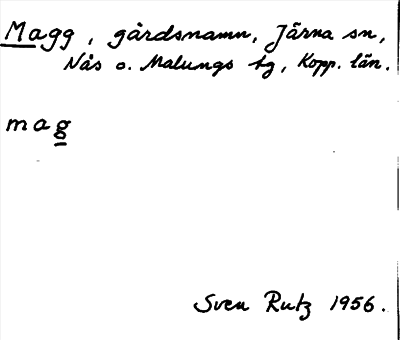 Magg, gårdsnamn, Järna sn,
Nås o. Malungs tg, Kopp. län.
mag
Sven Rutz 1956.